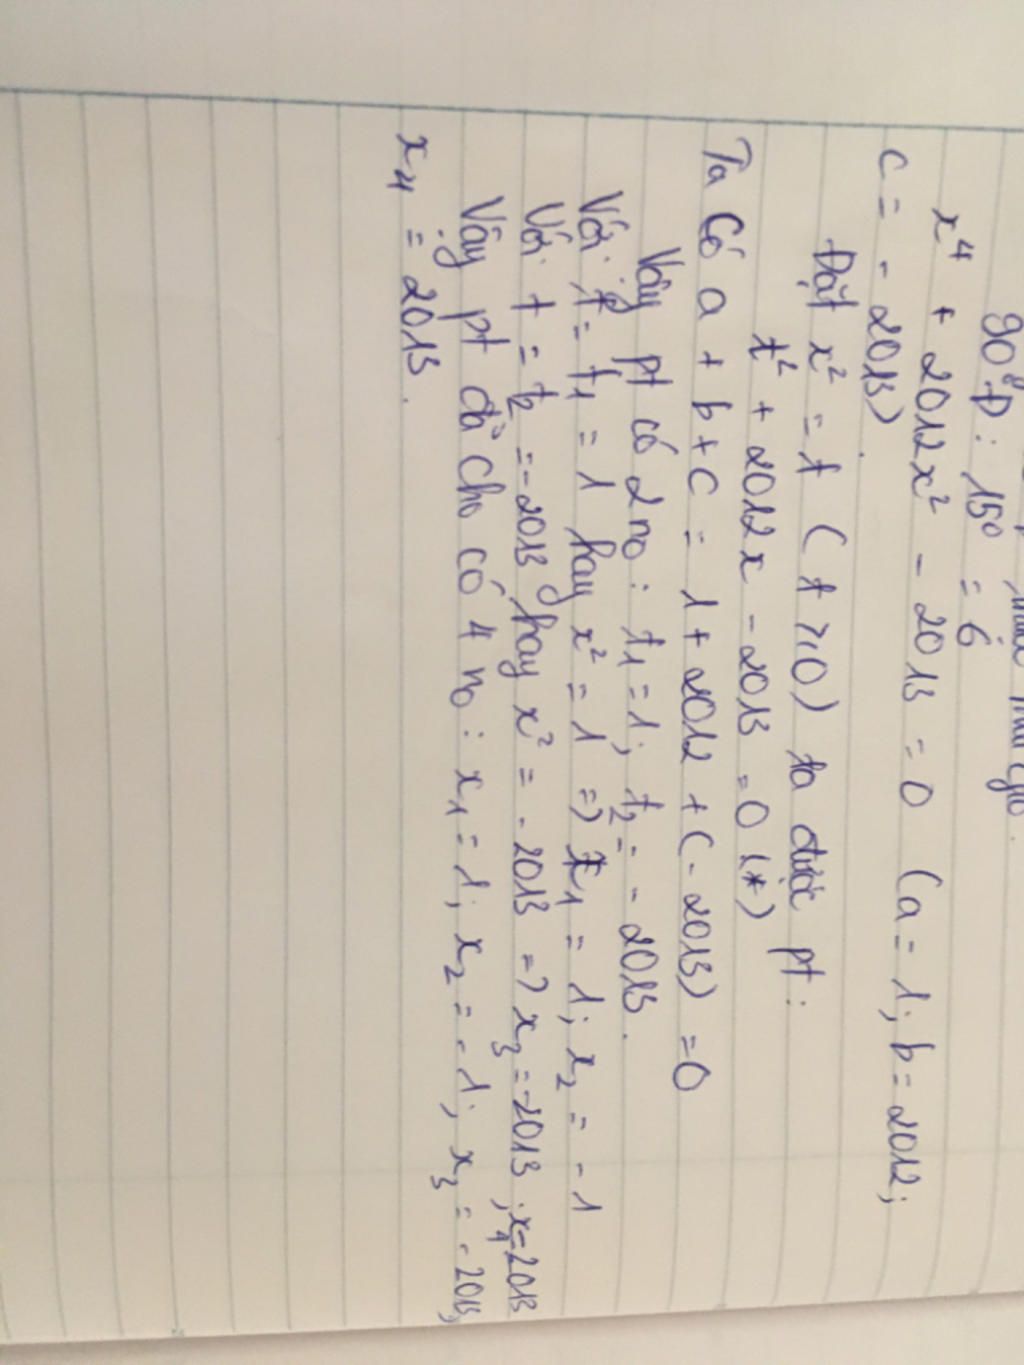 90⁸Đ : 15⁰ = 6
x⁴ + 2012x² - 2013 = 0 (a = 1; b = 2012;
c = - 2013)
Đặt x² = t (t ≥ 0) ta được pt:
t² + 2012x - 2013 = 0 (*)
Ta có a + b + c = 1 + 2012 + (- 2013) = 0
Vậy pt có 2 n₀ : t₁ = 1; t₂ = - 2013.
Với t = t₁ = 1 hay x² = 1 => x₁ = 1; x₂ = - 1
Với t = t₂ = - 2013 hay x² = - 2013 => x₃ = -2013; x₄ = 2013
Vậy pt đã cho có 4 n₀ : x₁ = 1; x₂ = - 1; x₃ = - 2013;
x₄ = 2013.